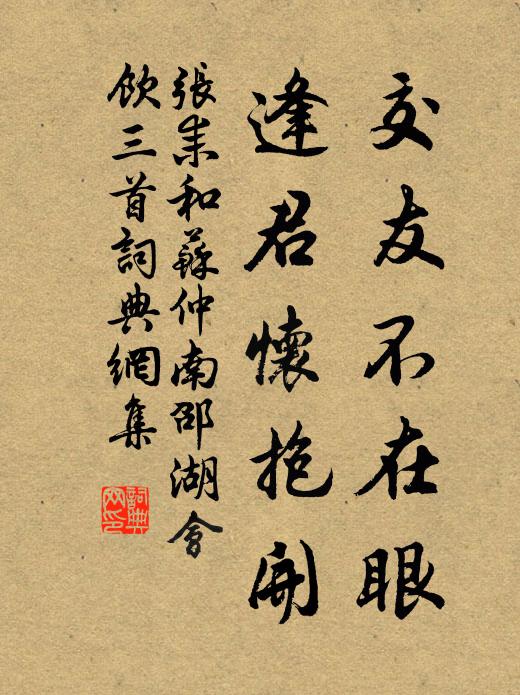 交友不在眼
逢君懷抱開
張耒和蘇仲南邵湖會
飲三首詞典網集
詞典
网印